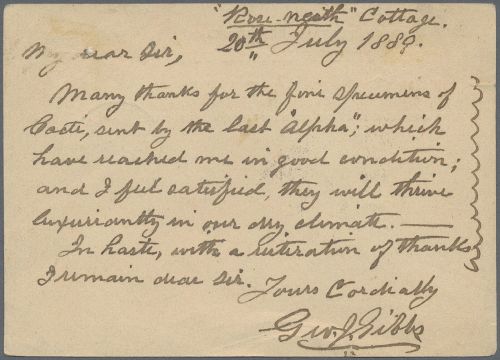 "Rose-neath" Cottage.
20th July 1889.
My dear Sir,
Many thanks for the fine specimens of
Cacti, sent by the last "Alpha"; which
have reached me in good condition;
and I feel satisfied, they will thrive
luxuriantly in our dry climate. —
In haste, with a reiteration of thanks
I remain dear Sir.
Yours Cordially
Geo. J. Gibbs